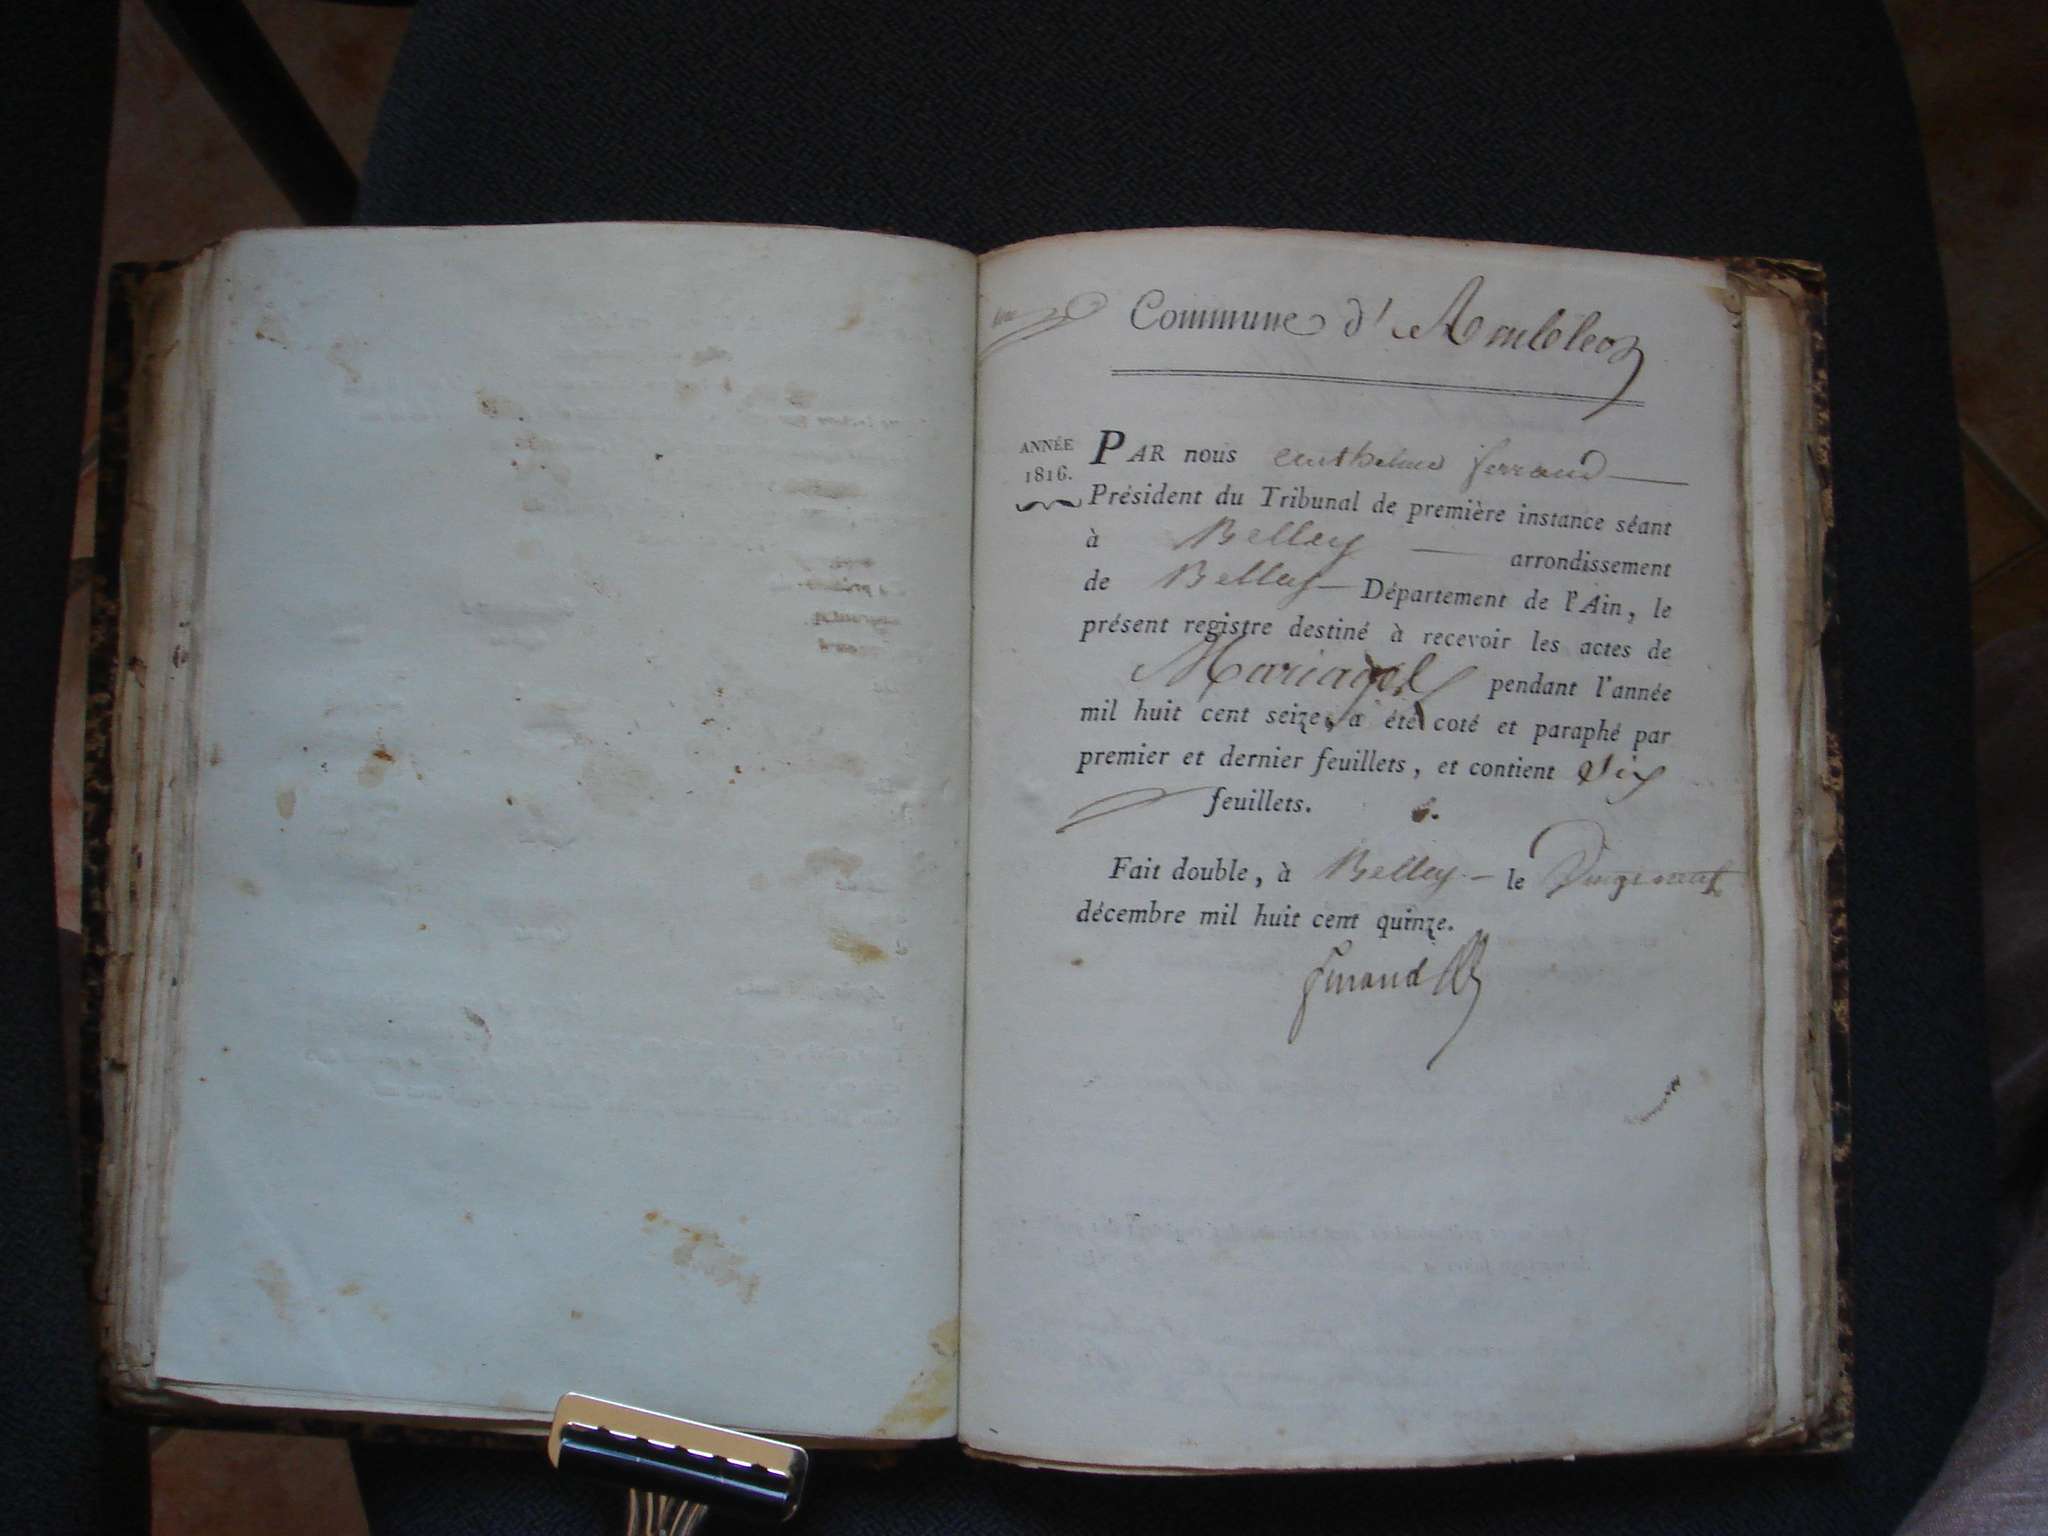 Commune d'Ambléon
ANNÉE
1816.
PAR nous anthelme ferrand
Président du Tribunal de première instance séant
à Belley arrondissement
de Belley Département de l'Ain, le
présent registre destiné à recevoir les actes de
Mariages pendant l'année
mil huit cent seize, a été coté et paraphé par
premier et dernier feuillets, et contient Six
feuillets.
Fait double, à Belley le
décembre mil huit cent quinze.
ferrand